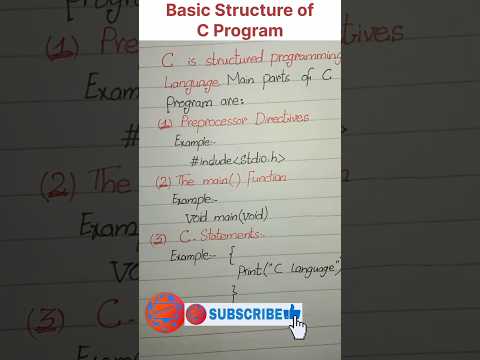 Basic Structure of
C Program
C is structured programming
Language Main parts of C
Program are:
(1) Preprocessor Directives
Example:-
#include<stdio.h>
(2) The main() Function
Example:-
void main(void)
(3) C. Statements:-
Example:- {
Print("C language")
}
SUBSCRIBE
(1) Prep
ectives
Exam
#in
h>
(2) The
Exam
vo
(3) C.